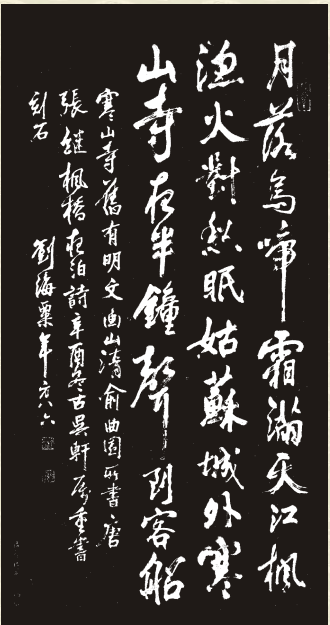 月落烏啼霜滿天江楓
漁火對愁眠姑蘇城外寒
山寺夜半鐘聲到客船
寒山寺舊有明文山清俞曲園所書唐
張繼楓橋夜泊詩辛酉冬古吳軒屬重書
刻石 劉海粟年方八六